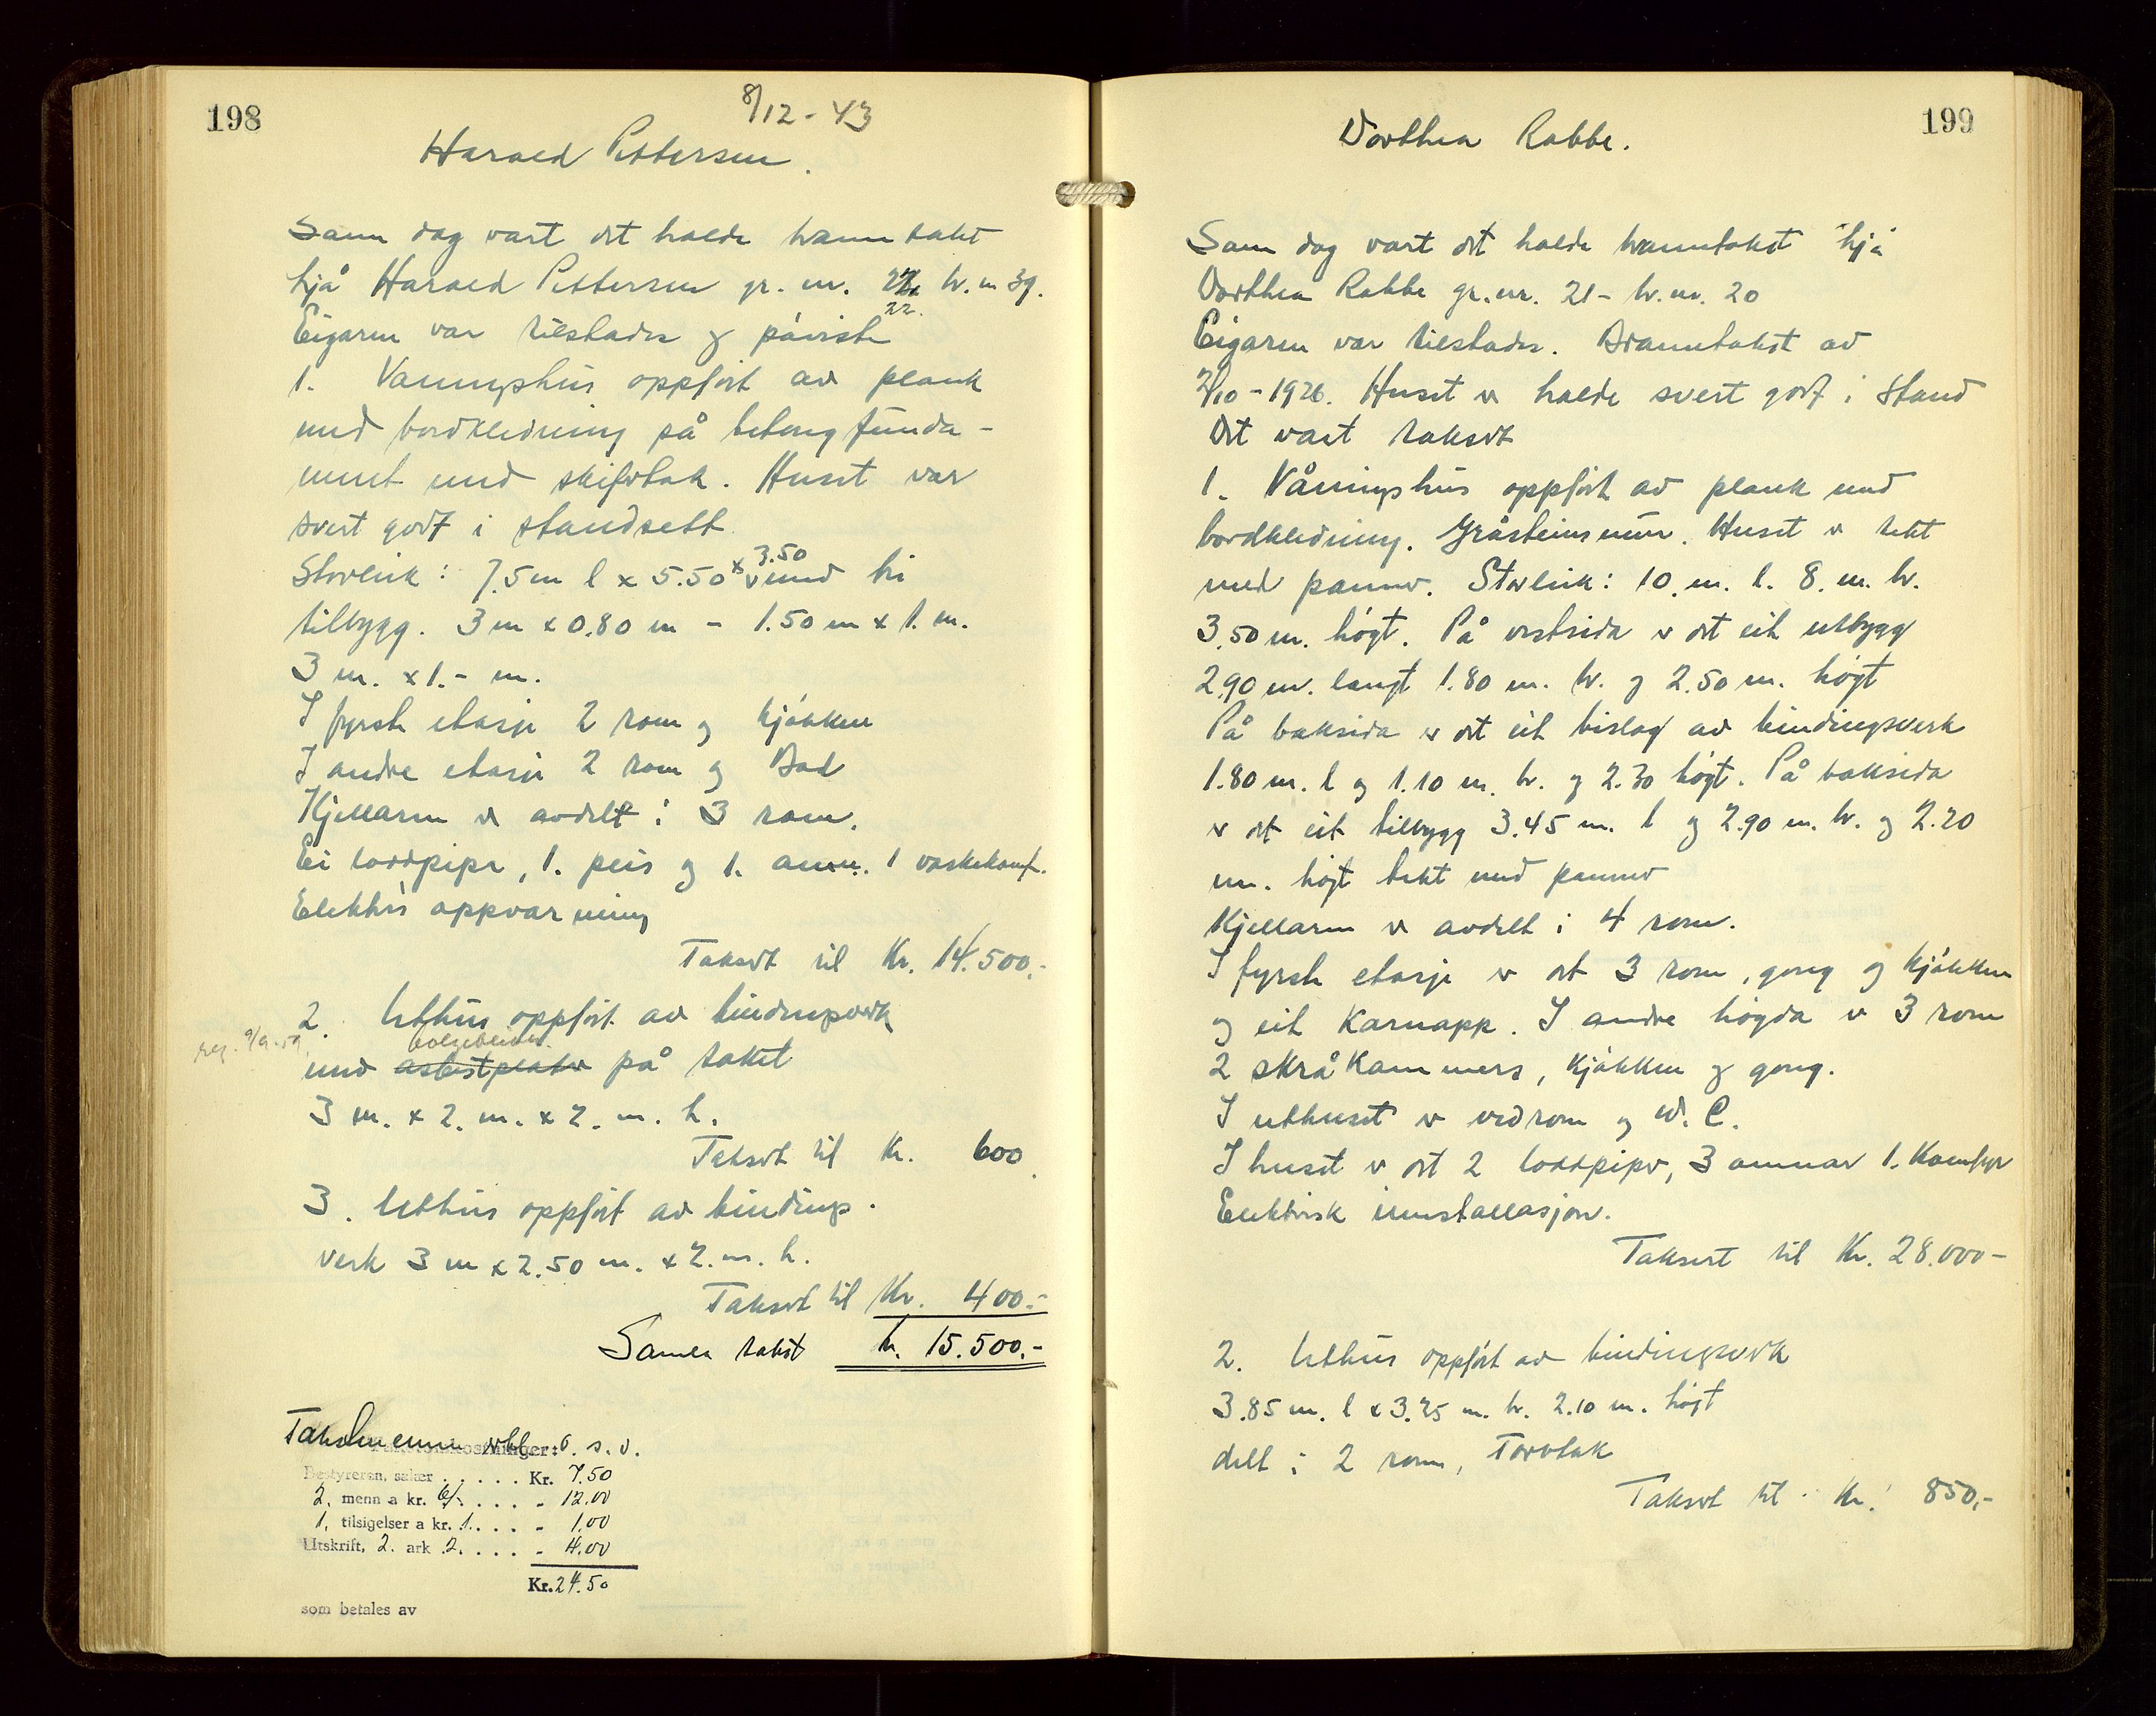 198
8/12 - 43
Harald Pettersen.
Sam dag vart det halde branntakst
hjå Harald Pettersen gr. nr. 22 br. n 39.
22.
Eigaren var tilstades og påviste
1. Vaaningshus oppført av plank
med bordkledning på betongfunda-
ment med skifertak. Huset var
svert godt i standsett
Storleik: 7.5 m l x 5.50 x 3.50 med tri
tilbygg. 3 m x 0.80 m - 1.50 m x 1. m.
3 m. x 1.- m.
I fyrste etasje 2 rom og kjøkken
I andre etasje 2 rom og Bad
Kjellaren er avdelt i 3 rom.
Ei loddpipe, 1. peis og 1. omn. 1 vaskekomf.
Elektris oppvarming
Taksert til Kr. 14.500.-
2. Uthus oppført av bindingsverk
reg. 9/9-59.
bølgeblekk
med asbestplater på taket
3 m. x 2. m. x 2. m. h.
Taksert til Kr. 600.
3. Uthus oppført av bindings-
verk 3 m x 2.50 m. x 2. m. h.
Taksert til Kr. 400.-
Samla takst kr. 15.500.-
Takstmennene vbl. o. s. v.
Bestyreren, salær . . . . . Kr. 7.50
2. menn a kr. 6/-. . . . - 12.00
1. tilsigelser a kr. 1. . . . - 1.00
Utskrift, 2. ark 2. . . . . - 4.00
Kr. 24.50
som betales av
199
Dorthea Rabbe.
Sam dag vart det halde branntakst hjå
Dorthea Rabbe gr. nr. 21 - br. nr. 20
Eigaren var tilstades. Branntakst av
2/10 - 1926. Huset er halde svert godt i Stand
Det vart taksert
1. Våningshus oppført av plank med
bordkledning. Gråsteinsmur. Huset er tekt
med panner. Storleik: 10. m. l. 8. m. br.
3.50 m. høgt. På vestsida er det eit utbygg
2.90 m. langt 1.80 m. br. og 2.50 m. høgt
På baksida er det eit bislag av bindingsverk
1.80 m. l og 1.10 m. br. og 2.30 høgt. På baksida
er det eit tilbygg 3.45 m. l og 2.90 m. br. og 2.20
m. høgt tekt med panner
Kjellaren er avdelt i 4 rom.
I fyrste etasje er det 3 rom, gong og kjøkken
og eit Karnapp. I andre høgda er 3 rom
2 skråkammers, kjøkken og gong.
I uthuset er vedrom og W. C.
I huset er det 2 loddpiper, 3 omnar 1. Komfyr
Elektrisk innstallasjon.
Taksert til Kr. 28.000-
2. Uthus oppført av bindingsverk
3.85 m. l x 3.25 m. br. 2.10 m. høgt
delt i 2 rom, Torvtak
Taksert til Kr. 850,-